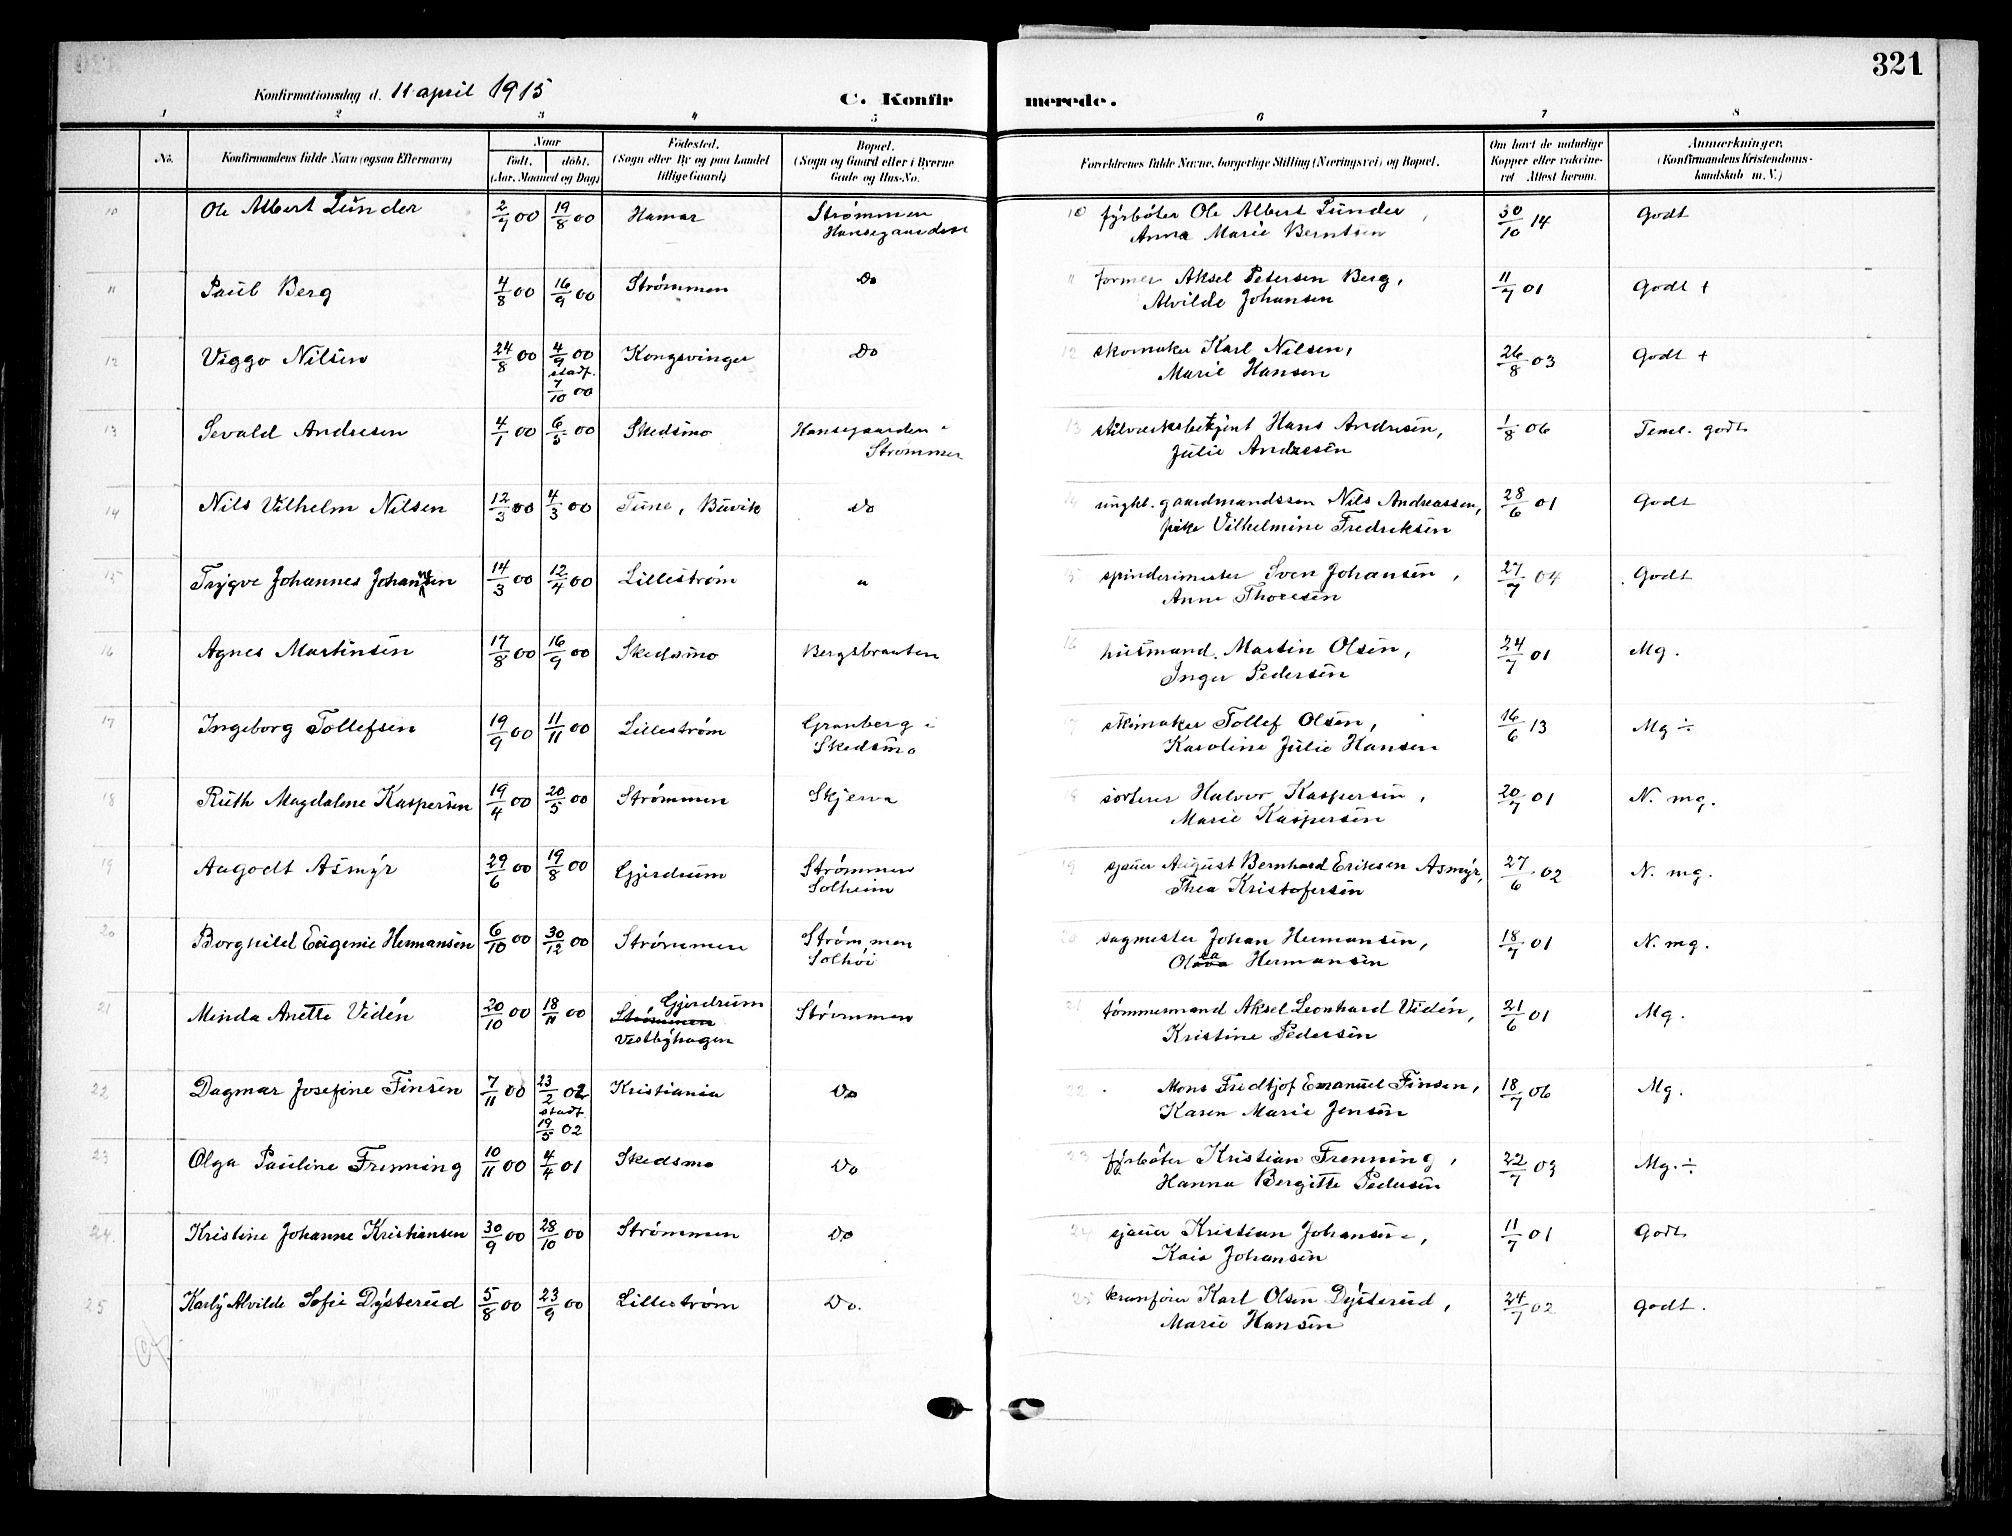 321
Konfirmationsdag d. 11 april 1915
C. Konfirmerede.
1 2 3 4 5 6 7 8
No. Konfirmandens fulde Navn (ogsaa Efternavn) Naar født. døbt. (Aar, Maaned og Dag) Fødested. (Sogn eller By og paa Landet tillige Gaard) Bopæl. (Sogn og Gaard eller i Byerne Gade og Hus-No. Forældrenes fulde Navne, borgerlige Stilling (Næringsvei) og Bopæl. Om havt de naturlige Kopper eller vaccineret Attest herom. Anmærkninger. (Konfirmandens Kristendomskundskab m. V.)
10 Ole Albert Lunder 2/7 00 19/8 00 Hamar Strømmen 10 fyrbøter Ole Albert Lunder, 30/10 14 Godt
Hansegaarden Anna Marie Berntsen
11 Paul Berg 4/8 00 16/9 00 Strømmen Do 11 former Aksel Petersen Berg, 11/7 01 Godt +
Alvilde Johansen
12 Viggo Nilsen 24/8 00 4/9 00 Kongsvinger Do 12 skomaker Karl Nilsen, 26/8 03 Godt +
stadf. 7/10 00 Marie Hansen
13 Sevald Andresen 4/1 00 6/5 00 Skedsmo Hansegaarden i 13 stilværksbetjent Hans Andresen, 1/8 06 Teml. godt
Strømmen Julie Andresen
14 Nils Vilhelm Nilsen 12/3 00 4/3 00 Tune, Buvik Do 14 ungkl. gaardmandssøn Nils Andreassen, 28/6 01 Godt
pike Vilhelmine Fredriksen
15 Trygve Johannes Johansen 14/3 00 12/4 00 Lillestrøm " 15 spinderimester Sven Johansen, 27/7 04 Godt
Anne Thoresen
16 Agnes Martinsen 17/8 00 16/9 00 Skedsmo Bergsbraaten 16 husmand. Martin Olsen, 24/7 01 Mg.
Inger Pedersen
17 Ingeborg Tollefsen 19/9 00 11/11 00 Lillestrøm Granberg i 17 skomaker Tollef Olsen, 16/6 13 Mg ÷
Skedsmo Karoline Julie Hansen
18 Ruth Magdalene Kaspersen 19/4 00 20/5 00 Strømmen Skjerva 18 sorterer Halvor Kaspersen, 20/7 01 N. mg.
Marie Kaspersen
19 Aagodt Asmyr 29/6 00 19/8 00 Gjerdrum Strømmen 19 sjauer August Bernhard Eriksen Asmyr, 27/6 02 N. mg.
Solheim Thea Kristofersen
20 Borghild Eugenie Hermansen 6/10 00 30/12 00 Strømmen Strømmen 20 sagmester Johan Hermansen, 18/7 01 N. mg.
Solhøi Hermansen
21 Minda Anette Vidén 20/10 00 18/11 00 Gjerdrum Strømmen 21 tømmermand Aksel Leonhard Vidén, 21/6 01 Mg.
Strømmen
Vestbyhagen Kristine Pedersen
22 Dagmar Josefine Finsen 7/11 00 23/2 02 Kristiania Do 22 Mons Fredtjof Emanuel Finsen, 18/7 06 Mg.
stadf. 19/5 02 Karen Marie Jensen
23 Olga Pauline Frenning 10/11 00 4/4 01 Skedsmo Do 23 fyrbøter Kristian Frenning, 22/7 03 Mg. ÷
Hanna Bergitte Pedersen
24 Kristine Johanne Kristiansen 30/9 00 28/10 00 Strømmen Do 24 sjauer Kristian Johansen, 11/7 01 Godt
Kaia Johansen
25 Karly Alvilde Sofie Dysterud 5/8 00 23/9 00 Lillestrøm Do. 25 kranfører Karl Olsen Dysterud, 24/7 02 godt.
Marie Hansen